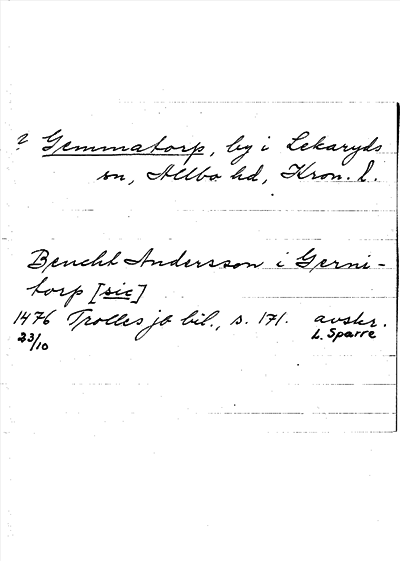 ? Gemmatorp, by i Lekaryds
sn, Allbo hd, Kron. l.
Bencht Andersson i Gerni-
torp [sic]
1476 Trollesjö bil., s. 171. avskr.
23/10 L. Sparre